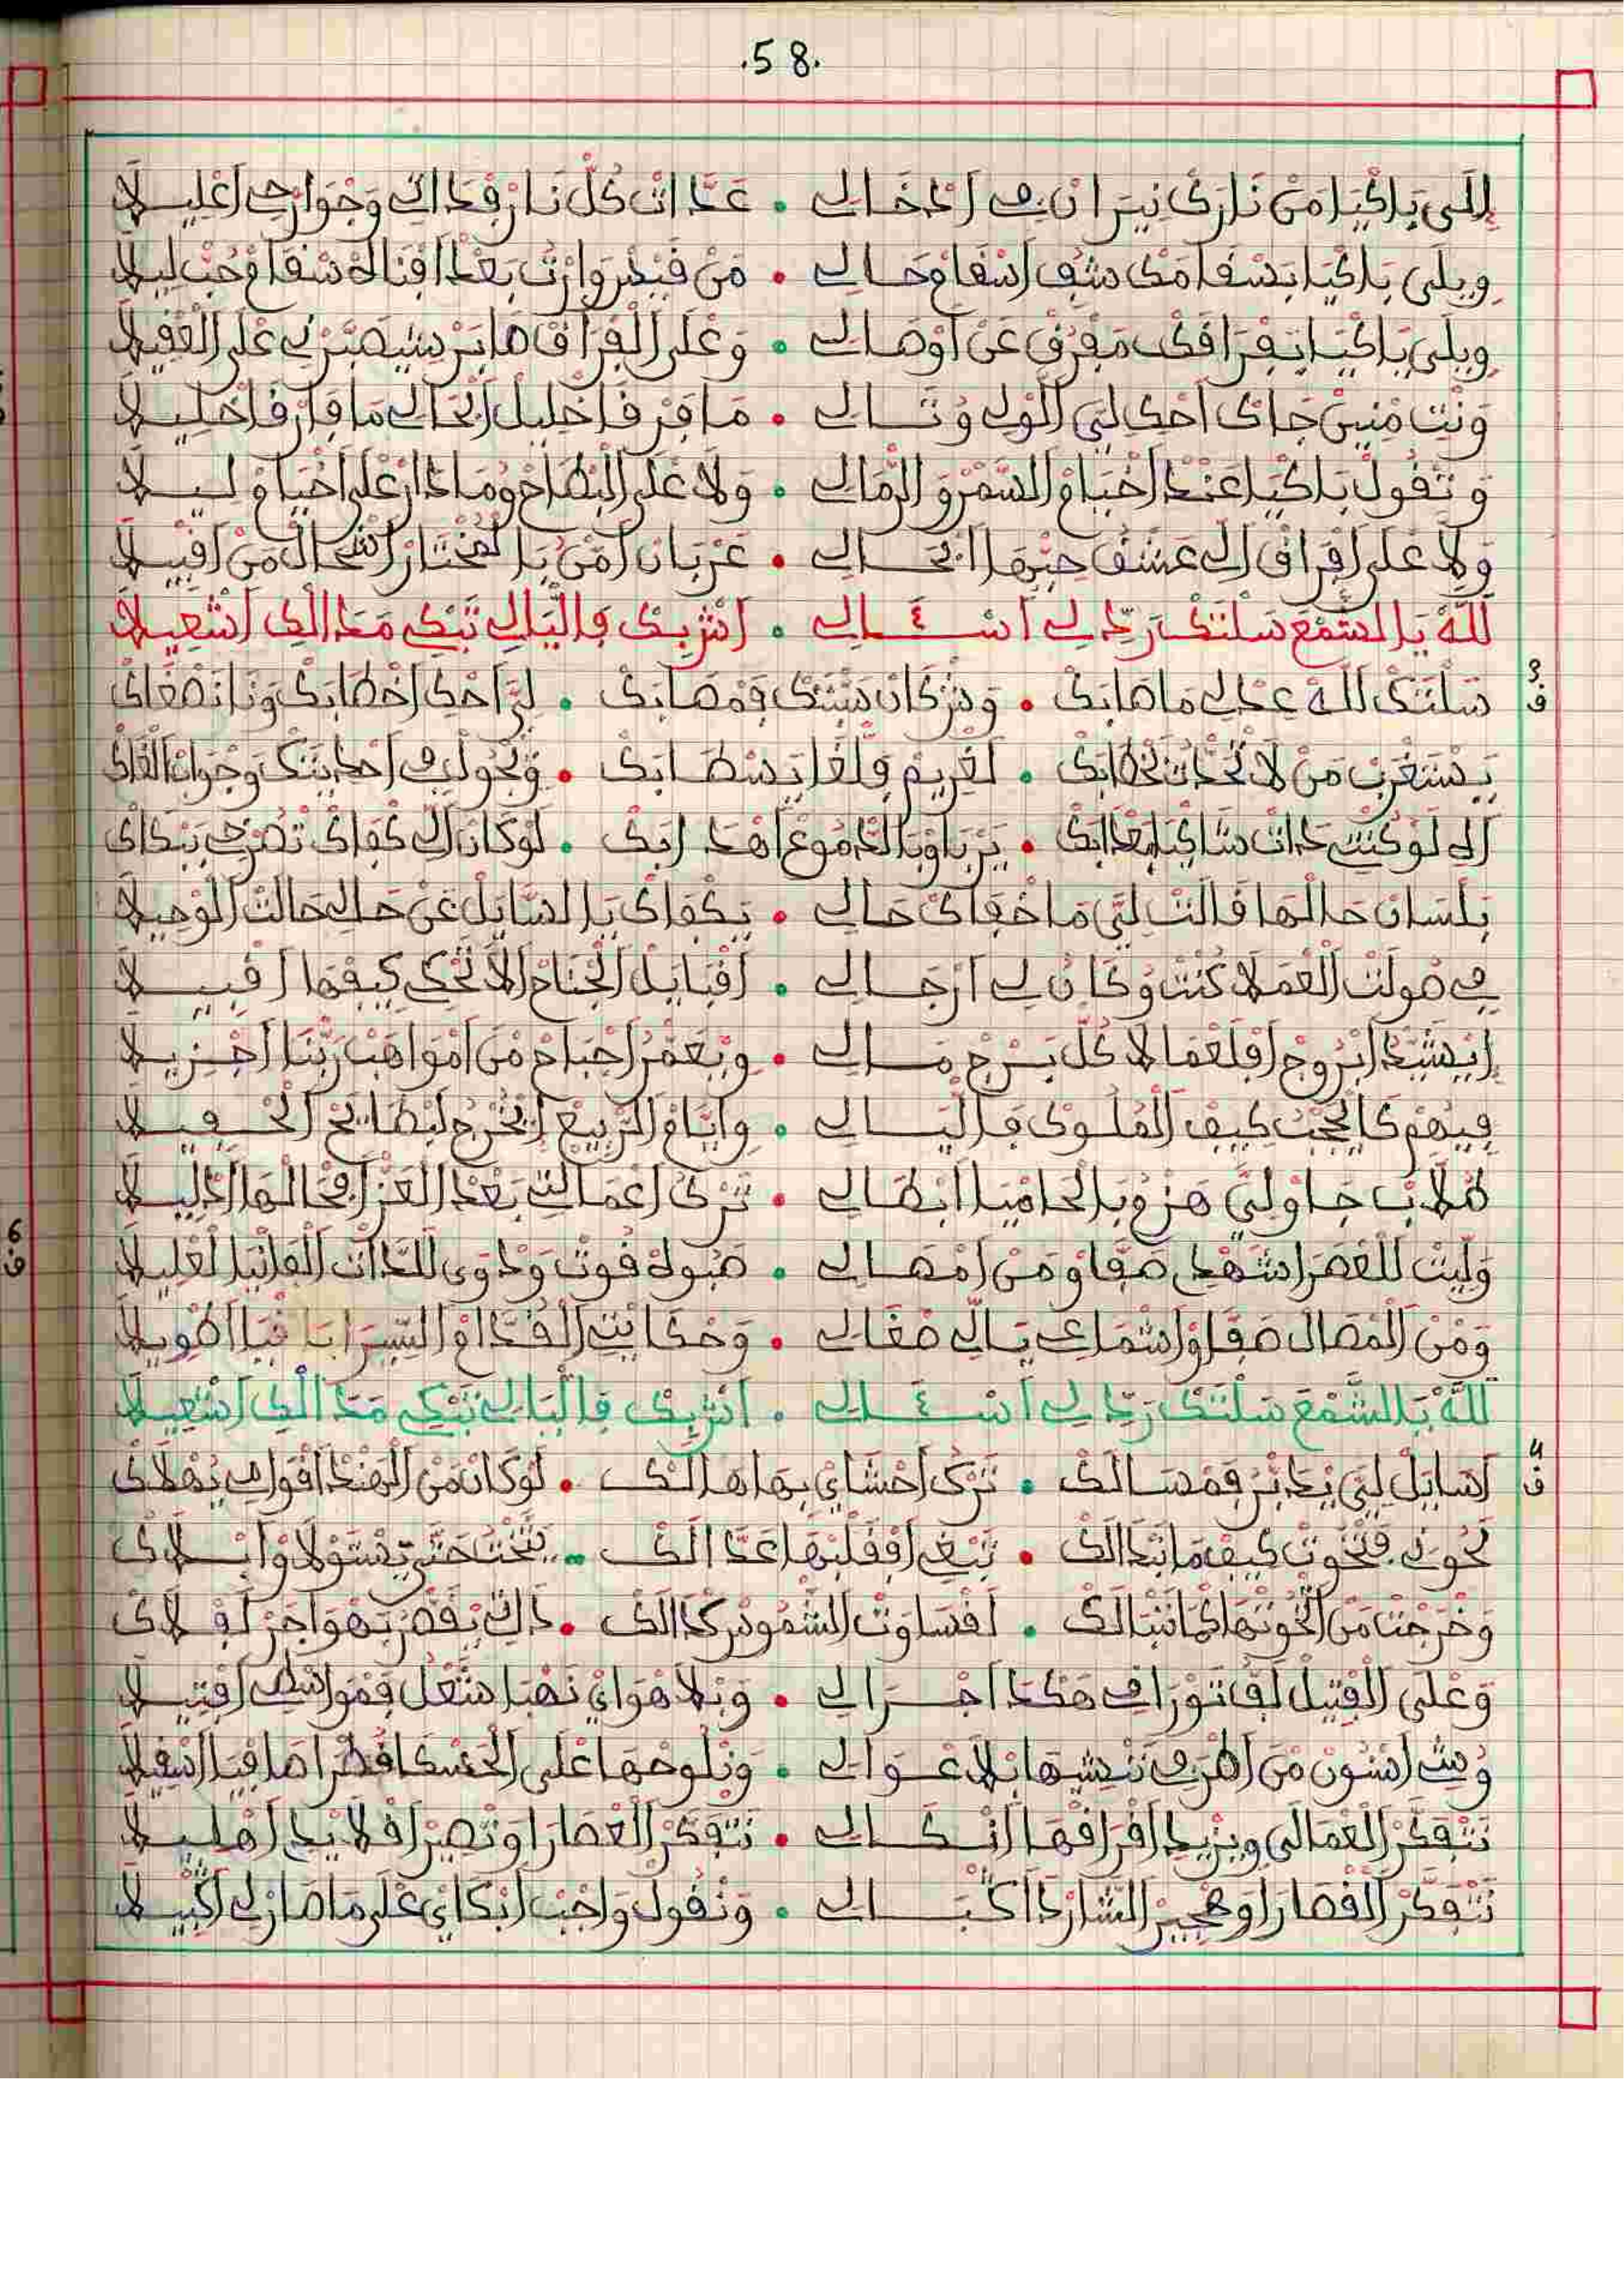 .58.
إلى باكيا من نارك نيران في ادخالي • عدات كل نار فداتي وجوارحي اعليلا
ويلى باكيا بسقامك شف اسقام حالي • من قيس وارث بعد افناه سقام حب ليلا
ويلى باكيا بفراقك مفرق عن اوصالي • وعلى الفراق صابر شيصبرني على الغفيلا
ونت منين جاك احكي لي الول وتالي • ما فر فاخليل ابحالي ما فار فاخليلا
وتقول باكيا عند اخيام السمر والرمالي • ولا على البطاح وما دار على اخيام ليلا
ولا على افراق الي عشق حبها ابحالي • عربان من يا لمختار اشحال من اقبيلا
لله يا الشمع سلتك رد لي اسئالي • اش بيك فالليالي تبكي مدالك اشعيلا
ف 3
سلتك لله عد لي ما صابك • وش كان سبتك فمصابك • لي احكي اخطابك ونا نصغاك
يستغرب من لا تحدات بخطابك • لغريم فلغا بسطابك • ونجول في احديتك وجواب الغاك
الى لو كنت دات شاكيا بعدابك • يرثاو بالدموع اهدابك • لو كان الي كفاك تصرخ ببكاك
بلسان حالها قالت لي ما خفاك حالي • يكفاك يا السايل عن حالي حالت الوحيلا
في صولت العملا كنت وكان لي ارجالي • اقبايل الجناح الا تحكي كيفها اقبيلا
ايشيد ابروج اقلعما لا كل برج مالي • ويعمر اجباح من امواهب ربنا اجزيلا
فيهم كانحجب كيف الملوك فالليالي • وايام الربيع نخرج لبطايح الحفيلا
طلاب جاو لي هزمو بالحاميا ابطالي • ترك اعمالتي بعد العز افحالها ادليلا
وليت للعصر اشهدي صفاو من امصالي • صبوه قوت ودوى للدات الفانيا لعليلا
ومن المصال صفاو اشماعي يا الي صغالي • وحكايتي القدام السيرا يا فيا اطويلا
لله يا الشمع سلتك رد لي اسئالي • اش بيك فالليالي تبكي مدالك اشعيلا
ف 4
اسايل لي يدبر فمسالك • ترك احشاي بها هالك • لو كان من الهند اقوافي يهلاك
نخوتي فنخوت كيف ما نبدالك • تبغي افقلبها عدالك • يتخت حتى يستولاو ابلاك
وخرجت من انخوتها كما نبالك • لقساوت الشموس كدالك • داك بقصرتهوا جر لفلاك
وعلى الفتيل لفتو رافي هكدا اجرالي • وبلا هواي نهبا شعل فمواسطي افتيلا
وش اسنون من اطرفي تنهشها بلا عوالي • ونلوحها على الحسكا قطرا صافيا اثقيلا
نتفكر العمالي ويزيد افراقها انكالي • نتفكر العصارا ونصير افلا يد اهليلا
نتفكر القصارا وهجير الشارد اكبالي • ونقول واجب ابكاي على ما صار لي اكبيلا
6
ف